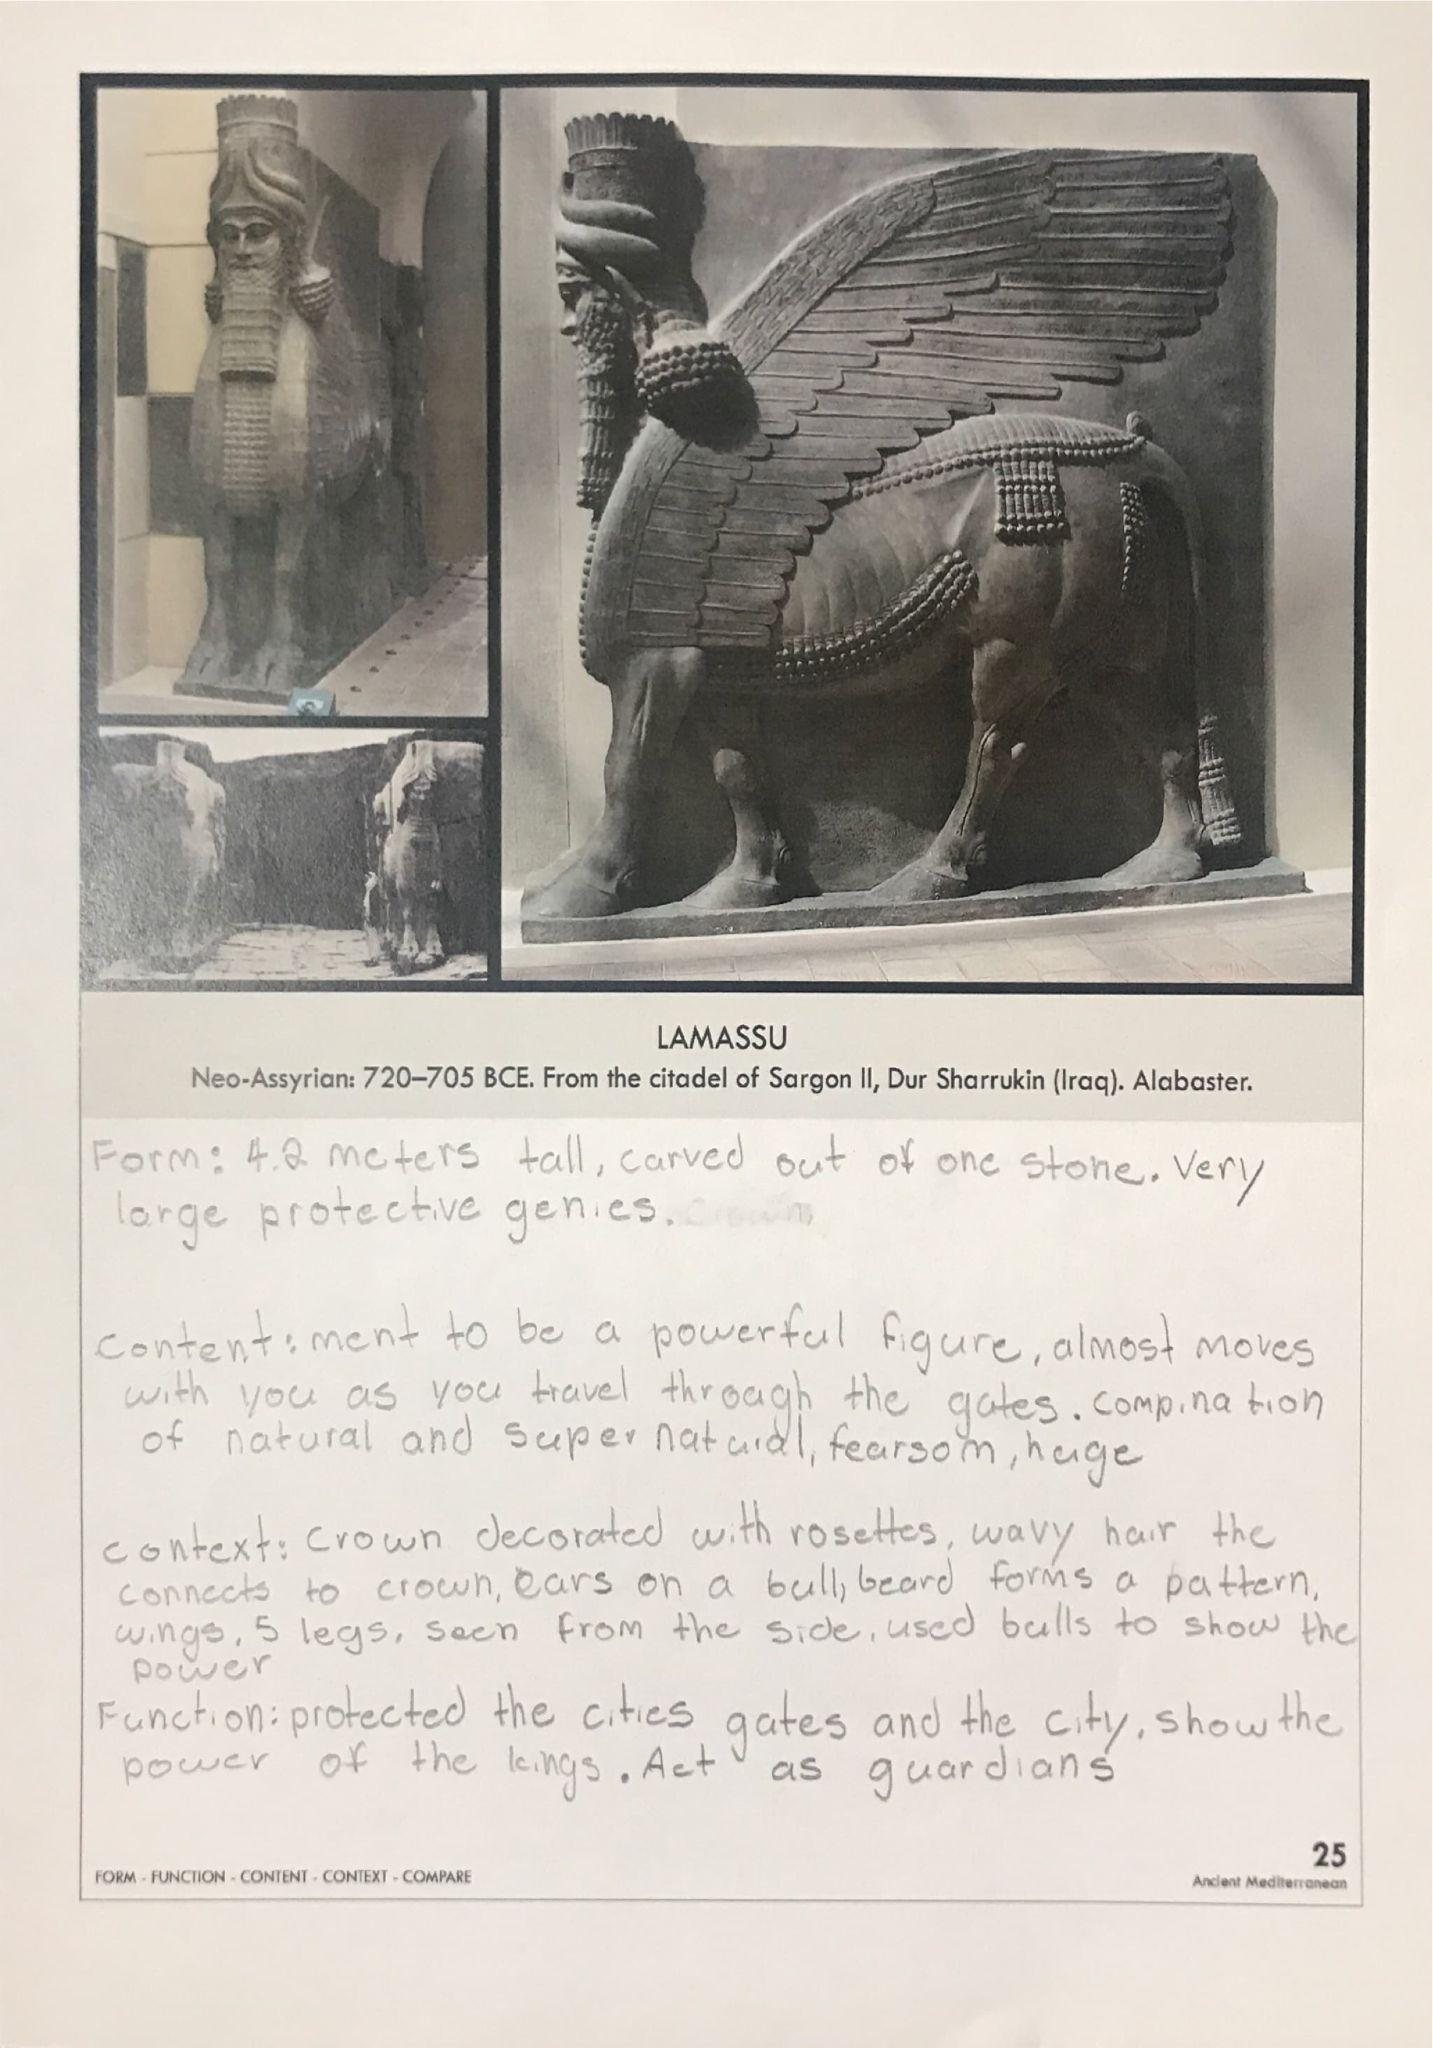 LAMASSU
Neo-Assyrian: 720–705 BCE. From the citadel of Sargon II, Dur Sharrukin (Iraq). Alabaster.
Form: 4.2 meters tall, carved out of one stone. Very
large protective genies. Crown
Content: ment to be a powerful figure, almost moves
with you as you travel through the gates. compination
of natural and supernatural, fearsom, huge
context: Crown decorated with rosettes, wavy hair the
connects to crown, ears on a bull, beard forms a pattern,
wings, 5 legs, seen from the side, used bulls to show the
power
Function: protected the cities gates and the city, show the
power of the kings. Act as guardians
FORM - FUNCTION - CONTENT - CONTEXT - COMPARE
25
Ancient Mediterranean